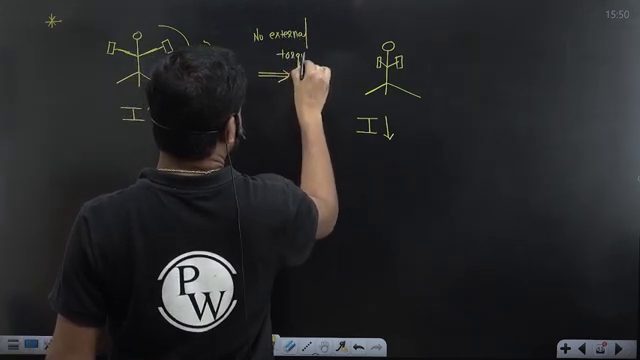 15:50
*
No external
torq
I
I↓
PW